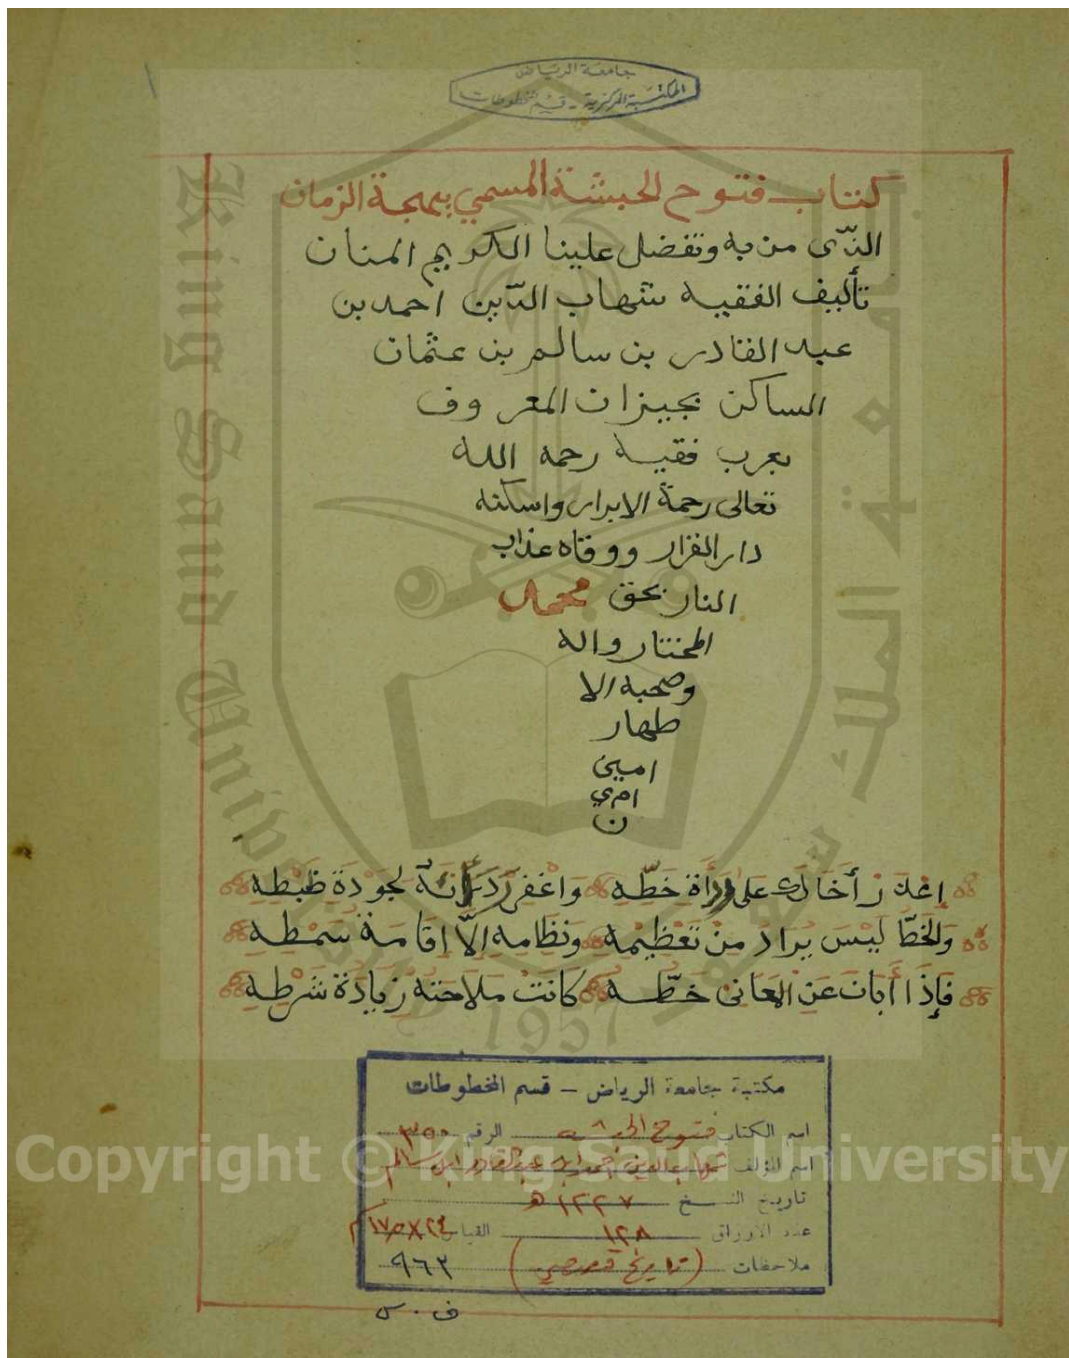 جامعة الرياض
المكتبة المركزية - قسم المخطوطات
كتاب فتوح الحبشة المسمي ببهجة الزمان
الذّى من به وتفضل علينا الكريم المنان
تأليف الفقيه شهاب الدّين احمد بن
عبد القادر بن سالم بن عثمان
الساكن بجيزان المعروف
بعرب فقيه رحمه الله
تعالى رحمة الابرار واسكنه
دار القرار ووقاه عذاب
النار بحق محمد
المختار واله
وصحبه الا
طهار
امين
امي
ن
إعذر أخاك على رداءة خطّه واغفر رداءته لجودة ضبطه
والخطّ ليس يراد من تعظيمه ونظامه إلّا إقامة سمطه
فإذا أبان عن المعاني خطّه كانت ملاحته زيادة شرطه
مكتبة جامعة الرياض - قسم المخطوطات
اسم الكتاب فتوح الحبشه الرقم ٣٥٠
اسم المؤلف شهاب الدين احمد بن عبد القادر ابن سالم
تاريخ النسخ ١٢٢٧ هـ
عدد الأوراق ١٢٨ القياس ٢٤×١٧٫٥ سم
ملاحظات (تاريخ قصصي) ٩٦٣
ف . س
King Saud University
جامعة الملك سعود
1957
Copyright © King Saud University